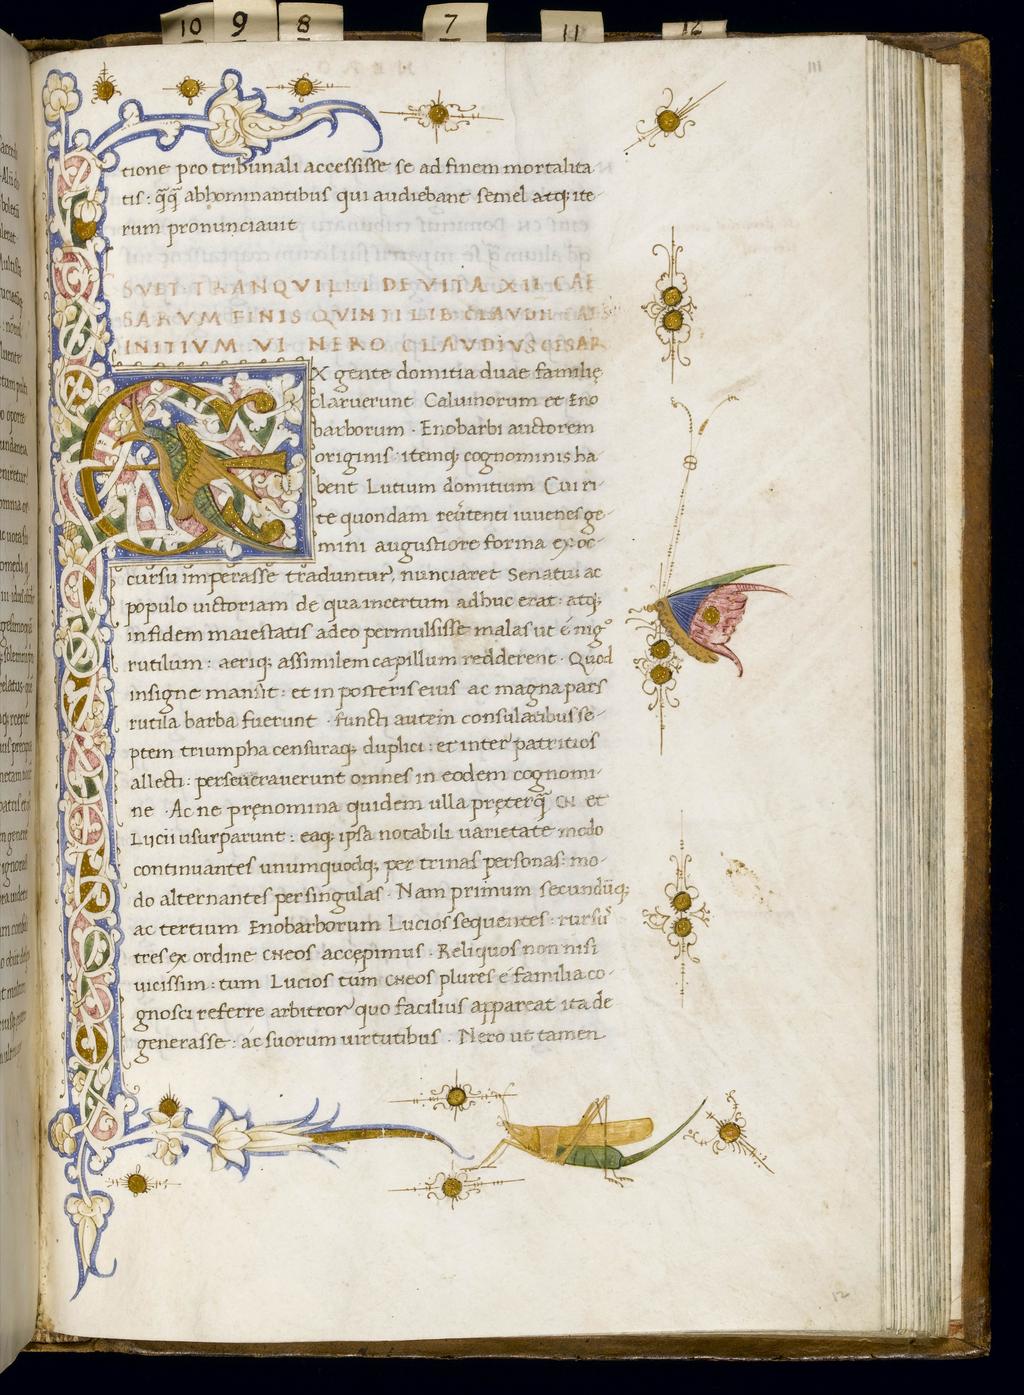 10 9 8 7 11 12
111
tione pro tribunali accessisse se ad finem mortalita
tis: q̃q̃ abhominantibus qui audiebant semel atq; ite-
rum pronunciauit
SVET. TRANQVILLI DE VITA XII CAE
SARVM FINIS QVINTI LIB. CLAVDII
INITIVM VI NERO CLAVDIVS CESAR
EX gente domitia duae familię
claruerunt Caluinorum et Eno
barborum · Enobarbi auctorem
originis: itemq; cognominis ha-
bent Lutium domitium Cui ru-
re quondam reũtenti iuuenes ge-
mini augustiore forma ex oc-
cursu imperasse traduntur, nunciaret Senatui ac
populo uictoriam de qua incertum adhuc erat: atq;
in fidem maiestatis adeo permulsisse malas ut é nigº
rutilum: aeriq; assimilem capillum redderent · Quod
insigne mansit: et in posteris eius ac magna pars
rutila barba fuerunt · functi autem consulatibus se-
ptem triumpha censuraq; duplici: et inter patritios
allecti: perseuerauerunt omnes in eodem cognomi-
ne · Ac ne pręnomina quidem ulla pręterq̃ CN et
Lucii usurparunt: eaq; ipsa notabili uarietate modo
continuantes unumquodq; per trinas personas: mo-
do alternantes per singulas · Nam primum secundũq;
ac tertium Enobarborum Lucios sequentes: rursũ
tres ex ordine CNEOS accepimus · Reliquos non nisi
uicissim: tum Lucios tum CNEOS plures é familia co-
gnosci referre arbitror quo facilius appareat ita de
generasse: ac suorum uirtutibus · Nero ut tamen
12